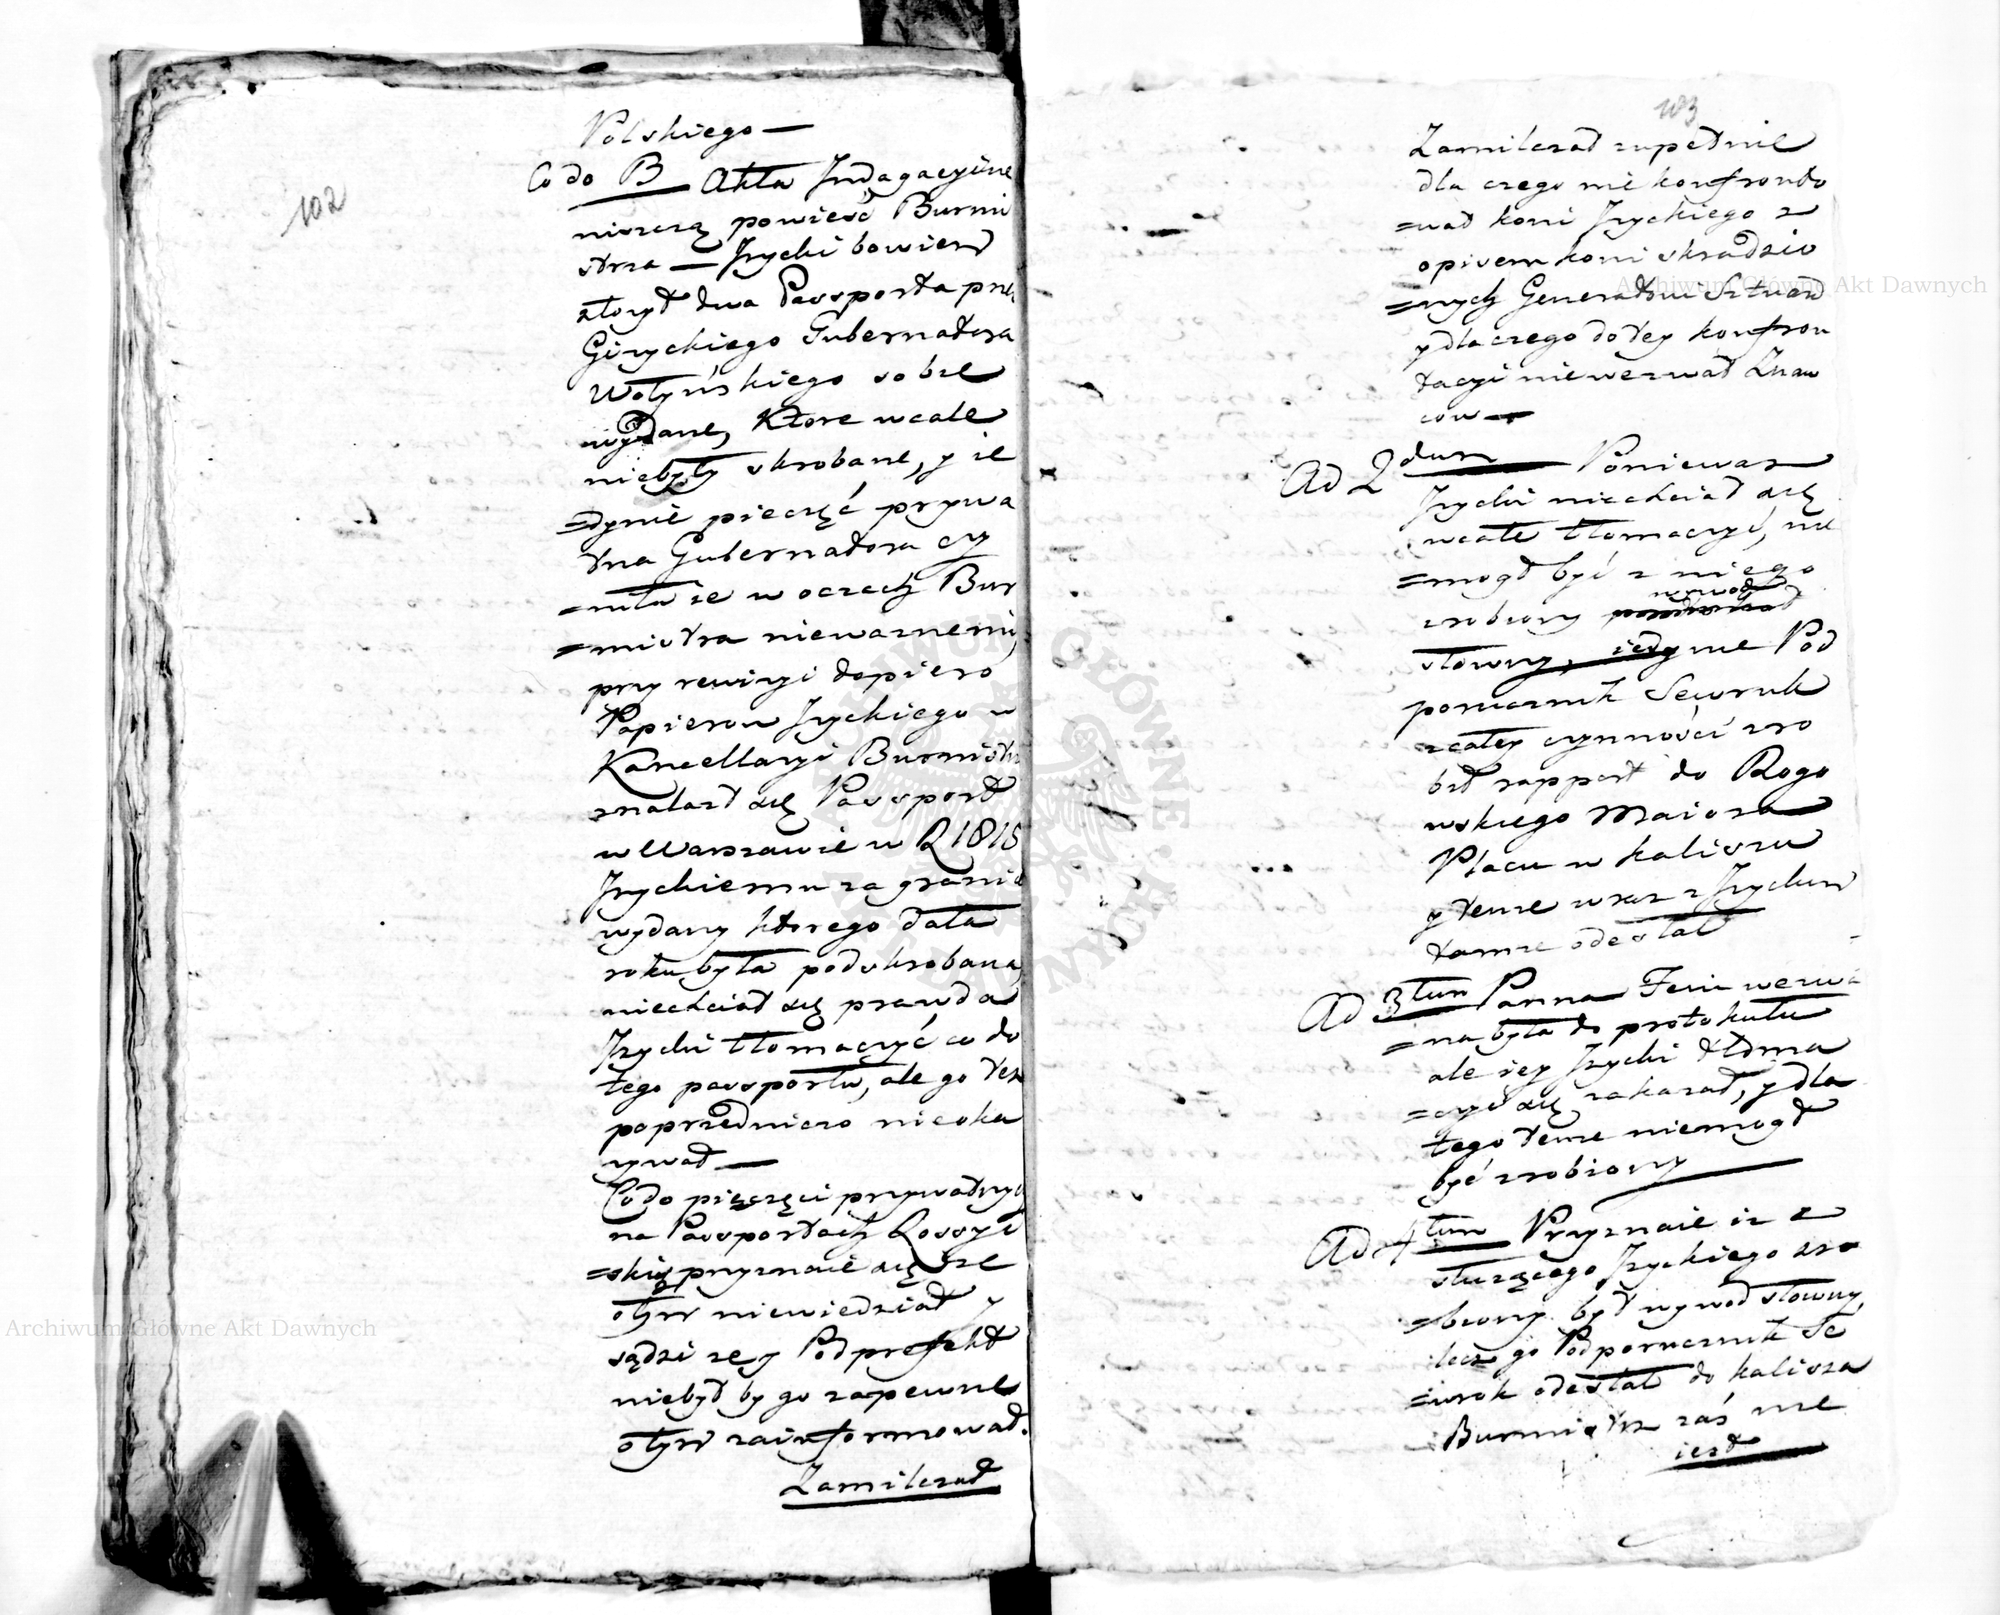 102
Polskiego —
Co do B Akta Indagacyine
niszczą powieść Burmi
strza — Jzycki bowiem
złożył dwa Passporta przez
Giżyckiego Gubernatora
Wołyńskiego sobie
wydane, Ktore wcale
niebyły skrobane, y ie
=dynie pieczęć prywa
tna Gubernatora czy
=niła ie w oczach Bur
=mistra nieważnemi,
przy rewizyi dopiero
Papierow Jzyckiego w
Kancellaryi Burmistrza
znalazł się Passport
w Warszawie w R 1815
Jzyckiemu za granicę
wydany ktorego data
roku była podskrobana,
niechciał się prawda
Jzycki tłomaczyć co do
tego passportu, ale go też
poprzedniczo nieoka
zywał —
Co do pieczęci prywatnych
na Passportach Rossyi
=skich przyznaie się że
otym niewiedział y
sądzi że y Podprefekt
niebył by go zapewne
otym zainformował.
Zamilczał
103
Zamilczał zupełnie
dla czego nie konfronto
=wał koni Jzyckiego z
opisem koni skradzio
=nych Generałowi
y dla czego do tey konfron
tacyi niewezwał Znaw
cow —
Ad 2dum Ponieważ
Jzycki niechciał się
wcale tłomaczyć, nie
=mogł być z niego
wywod
zrobiony
słowny, iedynie Pod
porucznik Sewruk
z całey czynności zro
bił rapport do Rogo
wskiego Maiora
Placu w Kaliszu
y tenże wraz z Jzyckim
tamże odesłał
Ad 3tium Panna Feni wezwa
=na była do protokułu
ale iey Jzycki tłoma
=czyć się zakazał, y dla
tego tenże niemogł
być zrobiony
Ad 4tum Przyznaie iż z
służącego Jzyckiego zro
=biony był wywod słowny,
lecz go Podporucznik Se
=wruk odesłał do Kalisza
Burmistrz zaś nie
iest
Archiwum Główne Akt Dawnych
Archiwum Główne Akt Dawnych
ARCHIWUM GŁÓWNE AKT DAWNYCH